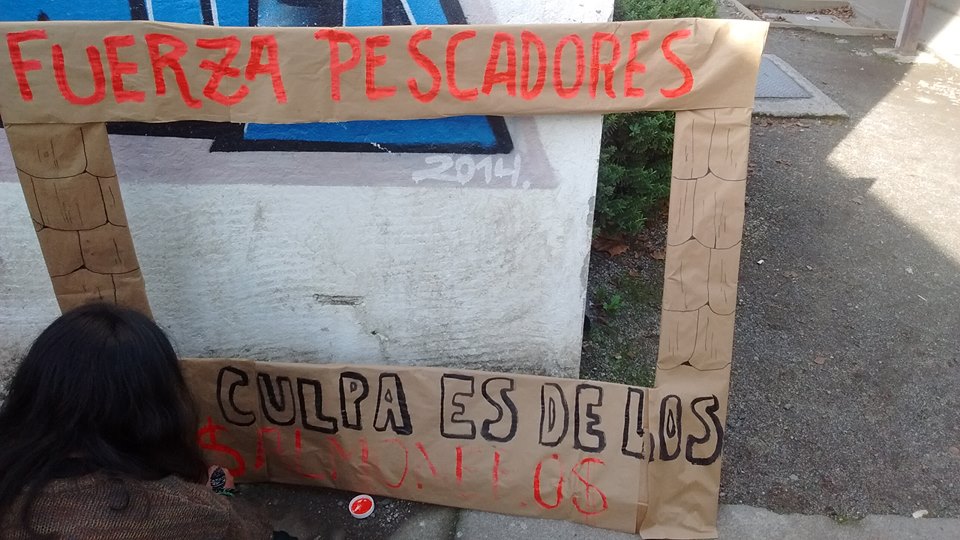 FUERZA PESCADORES
2014.
CULPA ES DE LOS
$ALMONEROS